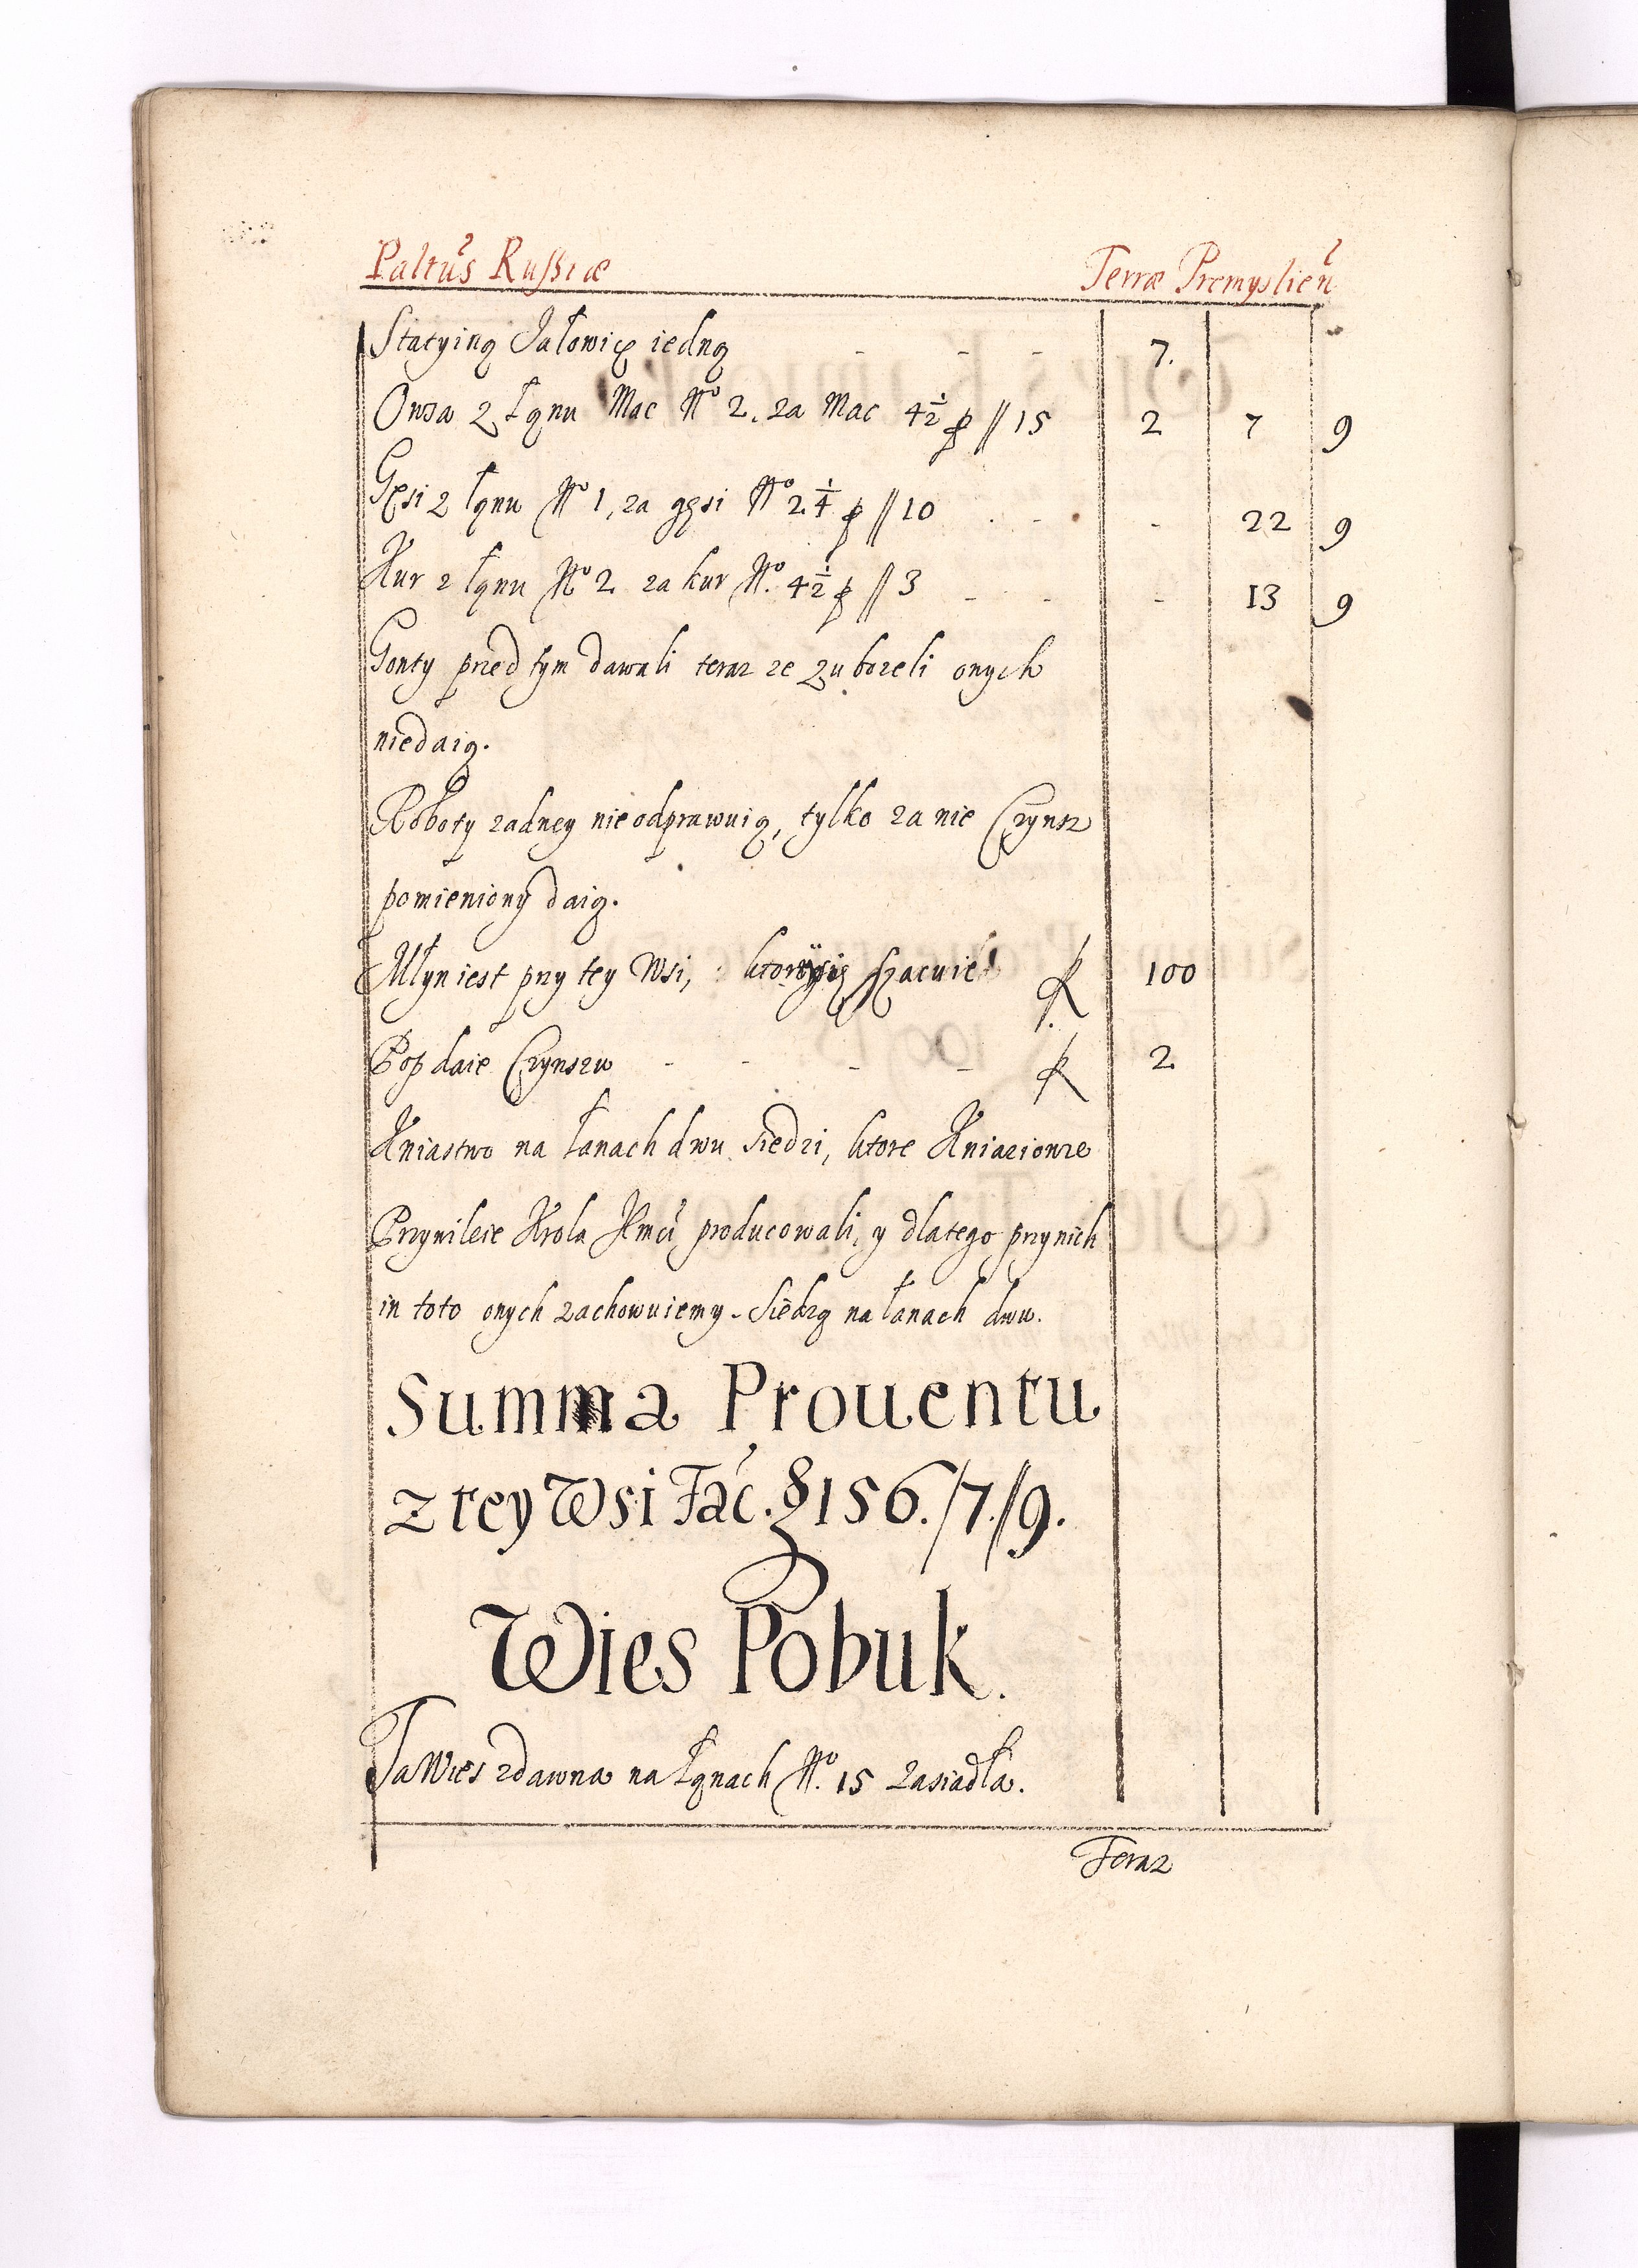 Paltus Russiæ Terræ Premyslien
Statyiną Jałowicę iedną - - - 7.
Owsa z Łąnu Mac No 2. za Mac 4½ p // 15 2 7 9
Gęsi z łąnu No 1, za gęsi No 2¼ p // 10 - - 22 9
Kur z łąnu No 2 za kur No. 4½ p // 3 - - - 13 9
Gonty przed tym dawali teraz ze zubozeli onych
niedaią.
Roboty zadney nieodprawuią, tylko za nie Czynsz
pomieniony daią.
Młyn iest przy tey Wsi, ktory się szacuie 100
Pop daie Czynszu - - - - 2
Kniastwo na łanach dwu siedzi, ktore Kniaziowie
Przywileie Krola Jmci producowali, y dlatego przy nich
in toto onych zachowuiemy. Siedzą na łanach dwu.
Summa Prouentu
z tey Wsi Fac. § 156./7.//9.
Wies Pobuk.
Ta Wies zdawna na Łąnach No. 15 zasiadła.
Teraz